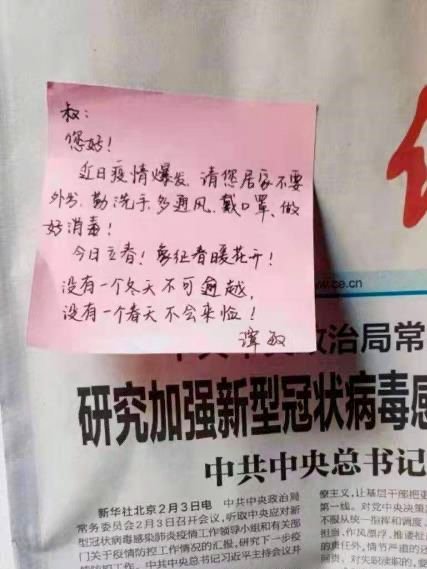 叔：
您好！
近日疫情爆发，请您居家不要
外出，勤洗手，多通风，戴口罩、做
好消毒！
今日立春！象征春暖花开！
没有一个冬天不可逾越，
没有一个春天不会来临！
谭敏
ce.cn
政治局常
研究加强新型冠状病毒感
中共中央总书记
新华社北京2月3日电 中共中央政治局
常务委员会2月3日召开会议，听取中央应对新
型冠状病毒感染肺炎疫情工作领导小组和有关部
门关于疫情防控工作情况的汇报，研究下一步疫
情防控工作。中共中央总书记习近平主持会议并
僚主义，让基层干部把更
第一线。对党中央决策
不服从统一指挥和调度、
担当、作风漂浮、推诿扯
的责任外，情节严重的还
对失职渎职的